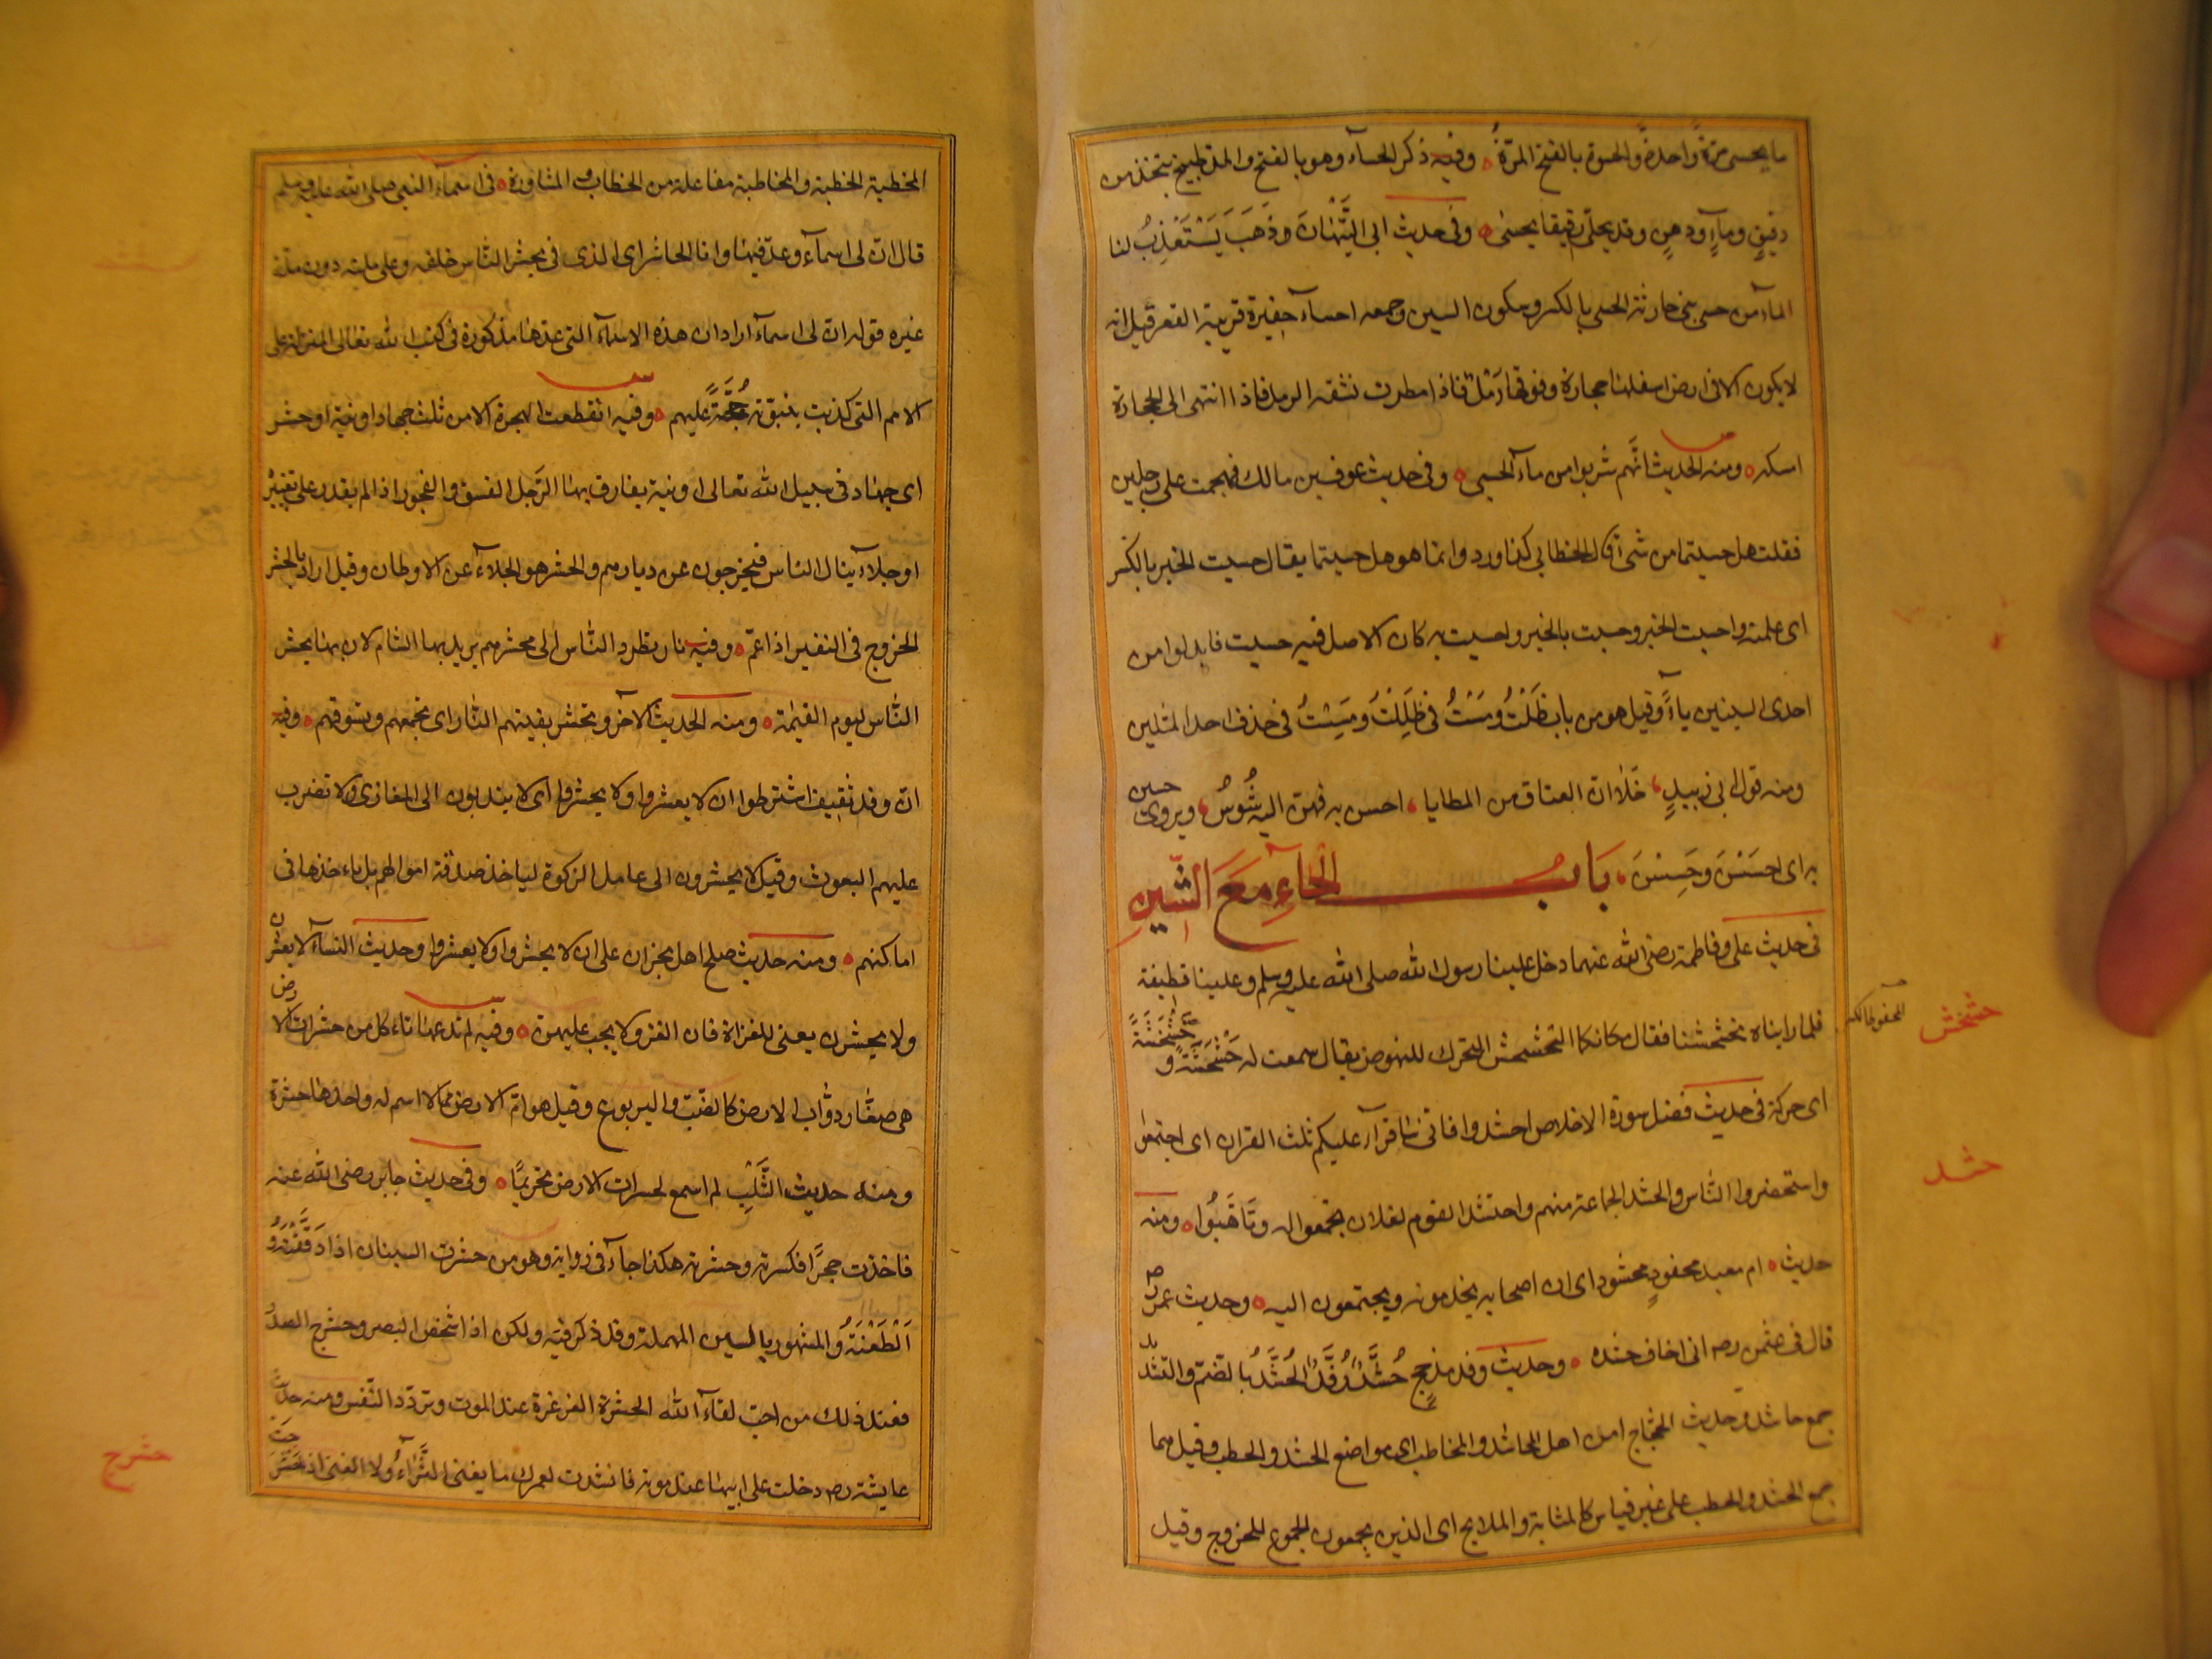 ما يحسى مرّةً واحدةً والحسوة بالفتح المرّةُ وفيه ذكر الحسآء وهو بالفتح والمدّ طبيخ يتخذ من
دقيقٍ ومآءٍ ودهنٍ وقد يحلّى رقيقا يحسٰى وفى حديث ابى الهَيْثَم وذَهَبَ يَسْتَعْذِبُ لنا
المآء من حسى بنى حارثة الحسى بالكسر وسكون السين وجمعه احسآء حفيرة قريبة القعر قيل انه
لا يكون الا فى ارض اسفلها حجارة وفوقها رَمْل فاذا امطرت نشّفه الرمل فاذا انتهى الى الحجارة
امسكه ومنه الحديث انَّهم شربوا من مآء الحسى وفى حديث عوف بن مالك فهجمت على رجلين
فقلت هل حسيتما من شئ قال الخطابى كذا ورد وانما هو هل حسيتما يقال حسيت الخبر بالكسر
اى علمته واحسيت الخبر وحسيت بالخبر واحسيت به كان الاصل فيه حسست فابدلوا من
احدى السينين يآءً وقيل هو من باب ظَلْتُ ومَسْتُ فى ظَلِلْتُ ومَسِسْتُ فى حذف احد المثلين
ومنه قول ابى زبيدٍ خَلا ان العتاق من المطايا احسن به فهن اليه شُوسُ ويروى حسين
به اى احسَسْنَ وحَسِسْنَ بَابُ الحَاءِ مَعَ الشِّينِ
فى حديث على وفاطمة رضى الله عنهما دخل علينا رسول الله صلى الله عليه وسلم وعلينا قطيفة
فلما رايناه تخشخشنا فقال مكانكما التحشحش التحرك للنهوض يقال سمعت له حَشْحَشَةً و خَشْخَشَةً
اى حركة فى حديث فضل سورة الاخلاص احشدوا فانى ساقرأ عليكم ثلث القران اى اجتمعوا
واستحضروا النّاس والحشد الجماعة منهم واحتشد القوم لفلان تجمعوا له وتَاهَّبُوا ومنه
حديث ام معبد محفودٍ محشود اى ان اصحابه يخدمونه ويجتمعون اليه وحديث عمر رض
قال فى عثمن رضه انى اخاف حشده وحديث وفد مذحجٍ حُشَّدٌ رُفَّدٌ الحُشَّدُ بالضّم والتشديد
جمع حاشد وحديث الحجّاج امن اهل المحاشد والمخاطب اى مواضع الحشد والخطب وقيل هما
جمع الحشد والخطب على غير قياس كالمشابه والملامح اى الذين يجمعون الجموع للخروج وقيل
حشحش
حشد
المخطبة الخطبة والمخاطبة مفاعلة من الخطاب والمشاورة فى اسمآء النبى صلى الله عليه وسلم
قال انّ لى اسمآء وعدّ فيها وانا الحاشر اى الذى يحشر النّاس خلفه وعلى ملّته دون ملّة
غيره قوله انّ لى اسمآء اراد ان هذه الاسمآء التى عدّها مذكورة فى كتب الله تعالى المنزّلة على
الامم التى كذبت بنبوّته حُجَّةً عليهم وفيه انقطعت الهجرة الا من ثلث جهاد او نية او حشر
اى جهاد فى سبيل الله تعالى او نية يفارق بها الرّجل الفسق والفجور اذا لم يقدر على تغييره
او جلآء ينال النّاس فيخرجون عن ديارهم والحشر هو الجلآء عن الاوطان وقيل اراد بالحشر
الخروج فى النفير اذا عمّ وفيه نار تطرد النّاس الى محشرهم يريد بها الشام لان بها يحشر
النّاس ليوم القيٰمة ومنه الحديث الآخر وتحشر بقيتهم النّار اى تجمعهم وتسوقهم وفيه
انّ وفد ثقيف اشترطوا ان لا يعشروا ولا يحشروا اى لا يندبون الى المغازى ولا تضرب
عليهم البعوث وقيل لا يحشرون الى عامل الزكوة لياخذ صدقة اموالهم بل ياخذها فى
اماكنهم ومنه حديث صلح اهل نجران على ان لا يحشروا ولا يعشروا وحديث النسآء لا يعشرن
ولا يحشرن يعنى للغزاة فان الغزو لا يجب عليهنّ وفيه لم تدعها تاكل من حشرات الارض
هى صغار دوّاب الارض كالضّبّ واليربوع وقيل هوامّ الارض مما لا اسم له واحدها حشرة
ومنه حديث التَّلِبِّ لم اسمع لحشرات الارض تحريمًا وفى حديث جابر رضى الله عنه
فاخذت حجرًا فكسرته وحشرته هكذا جآء فى رواية وهو من حشرت السنان اذا دَقَّقْتَهُ و
اَلْطَفْتَهُ والمشهور بالسين المهملة وقد ذكر فيه ولكن اذا شخص البصر وحشرج الصدر
فعند ذلك من احبّ لقآء الله الحشرجة الغرغرة عند الموت وتردّد النّفس ومنه حديث
عايشة رضه دخلت على ابيها عند موته فانشدت لعمرك ما يغنى الثَّرَاءُ ولا الغنى اذا حَشْرَجَتْ
حشرج